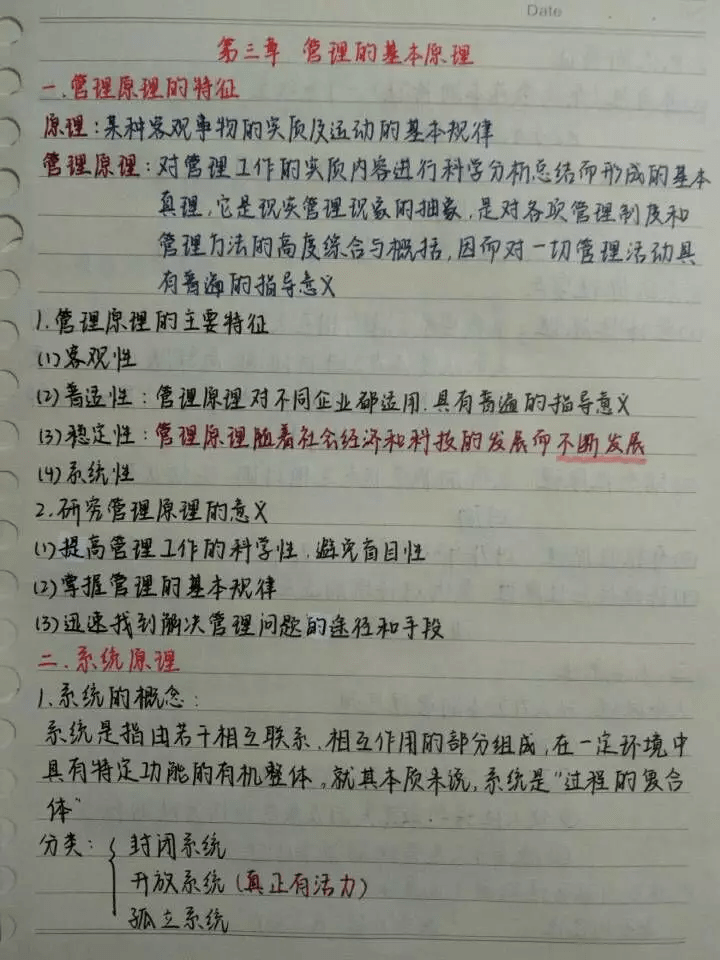 Date
第三章 管理的基本原理
一.管理原理的特征
原理:某种客观事物的实质及运动的基本规律
管理原理:对管理工作的实质内容进行科学分析总结而形成的基本
真理,它是现实管理现象的抽象,是对各项管理制度和
管理方法的高度综合与概括,因而对一切管理活动具
有普遍的指导意义
1.管理原理的主要特征
(1)客观性
(2)普适性:管理原理对不同企业都适用.具有普遍的指导意义
(3)稳定性:管理原理随着社会经济和科技的发展而不断发展
(4)系统性
2.研究管理原理的意义
(1)提高管理工作的科学性.避免盲目性
(2)掌握管理的基本规律
(3)迅速找到解决管理问题的途径和手段
二.系统原理
1.系统的概念:
系统是指由若干相互联系.相互作用的部分组成,在一定环境中
具有特定功能的有机整体。就其本质来说,系统是"过程的复合
体"
分类:{ 封闭系统
开放系统(真正有活力)
孤立系统